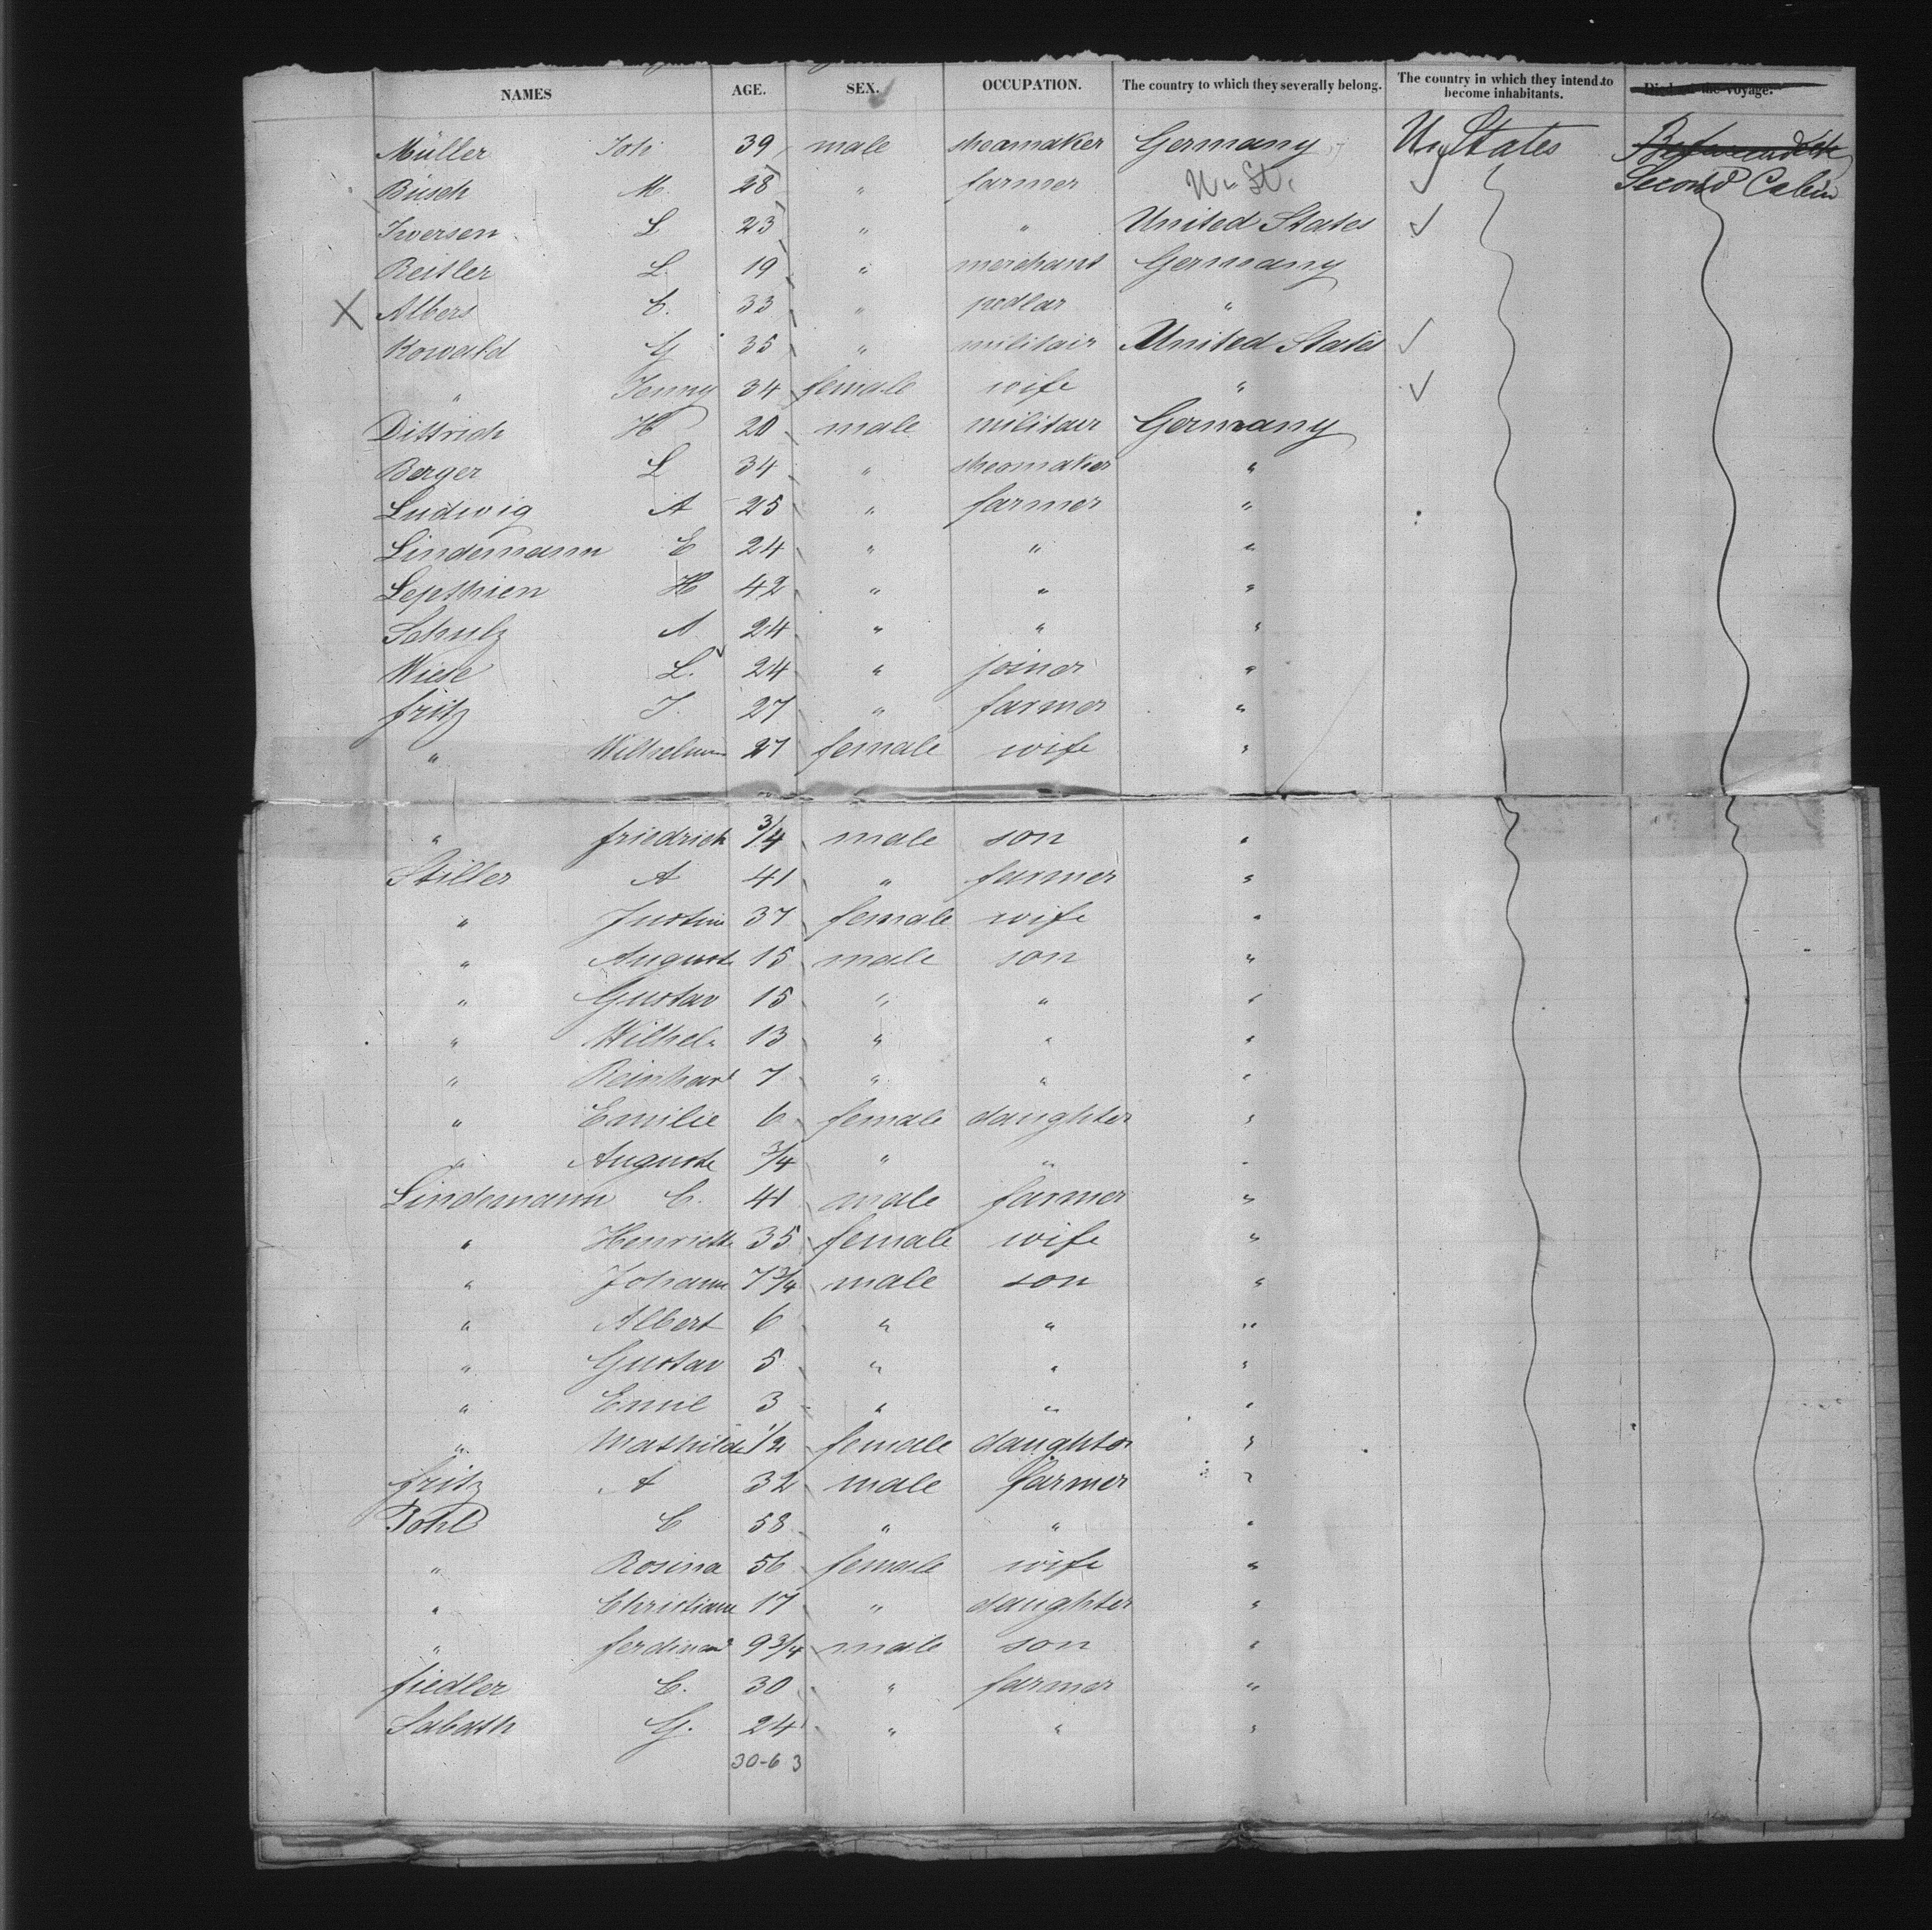 NAMES AGE. SEX. OCCUPATION. The country to which they severally belong. The country in which they intend to become inhabitants. the voyage.
Müller Joh 39 male shoamaker Germany Un States
Busch M. 28 " farmer Un St. Second Cabin
Iwersen L 23 " " United States
Reitler L. 19 " merchant Germany
X Albers C. 33 " pedlar "
Kowald G 35 " militair United States
" Jenny 34 female wife "
Dittrich H 20 male militair Germany
Berger L 34 " shoamaker "
Ludwig A 25 " farmer "
Lindemann E 24 " " "
Lepthien H 42 " " "
Schulz A 24 " " "
Wiese L. 24 " joiner "
Fritz J. 27 " farmer "
" Wilhelmin 27 female wife "
" Friedrich 3/4 male son "
Stiller A 41 " farmer "
" Justine 37 female wife "
" August 15 male son "
" Gustav 15 " " "
" Wilhelm 13 " " "
" Reinhard 7 " " "
" Emilie 6 female daughter "
" Auguste 3/4 " " "
Lindemann C. 41 male farmer "
" Henriette 35 female wife "
" Johann 7 3/4 male son "
" Albert 6 " " "
" Gustav 5 " " "
" Emil 3 " " "
" Mathilde 1/2 female daughter "
Fritz A 32 male farmer "
Pohl C 58 " " "
" Rosina 56 female wife "
" Christiane 17 " daughter "
" Ferdinand 9 3/4 male son "
Fiedler C. 30 " farmer "
Sabath G. 24 " " "
30-6 3